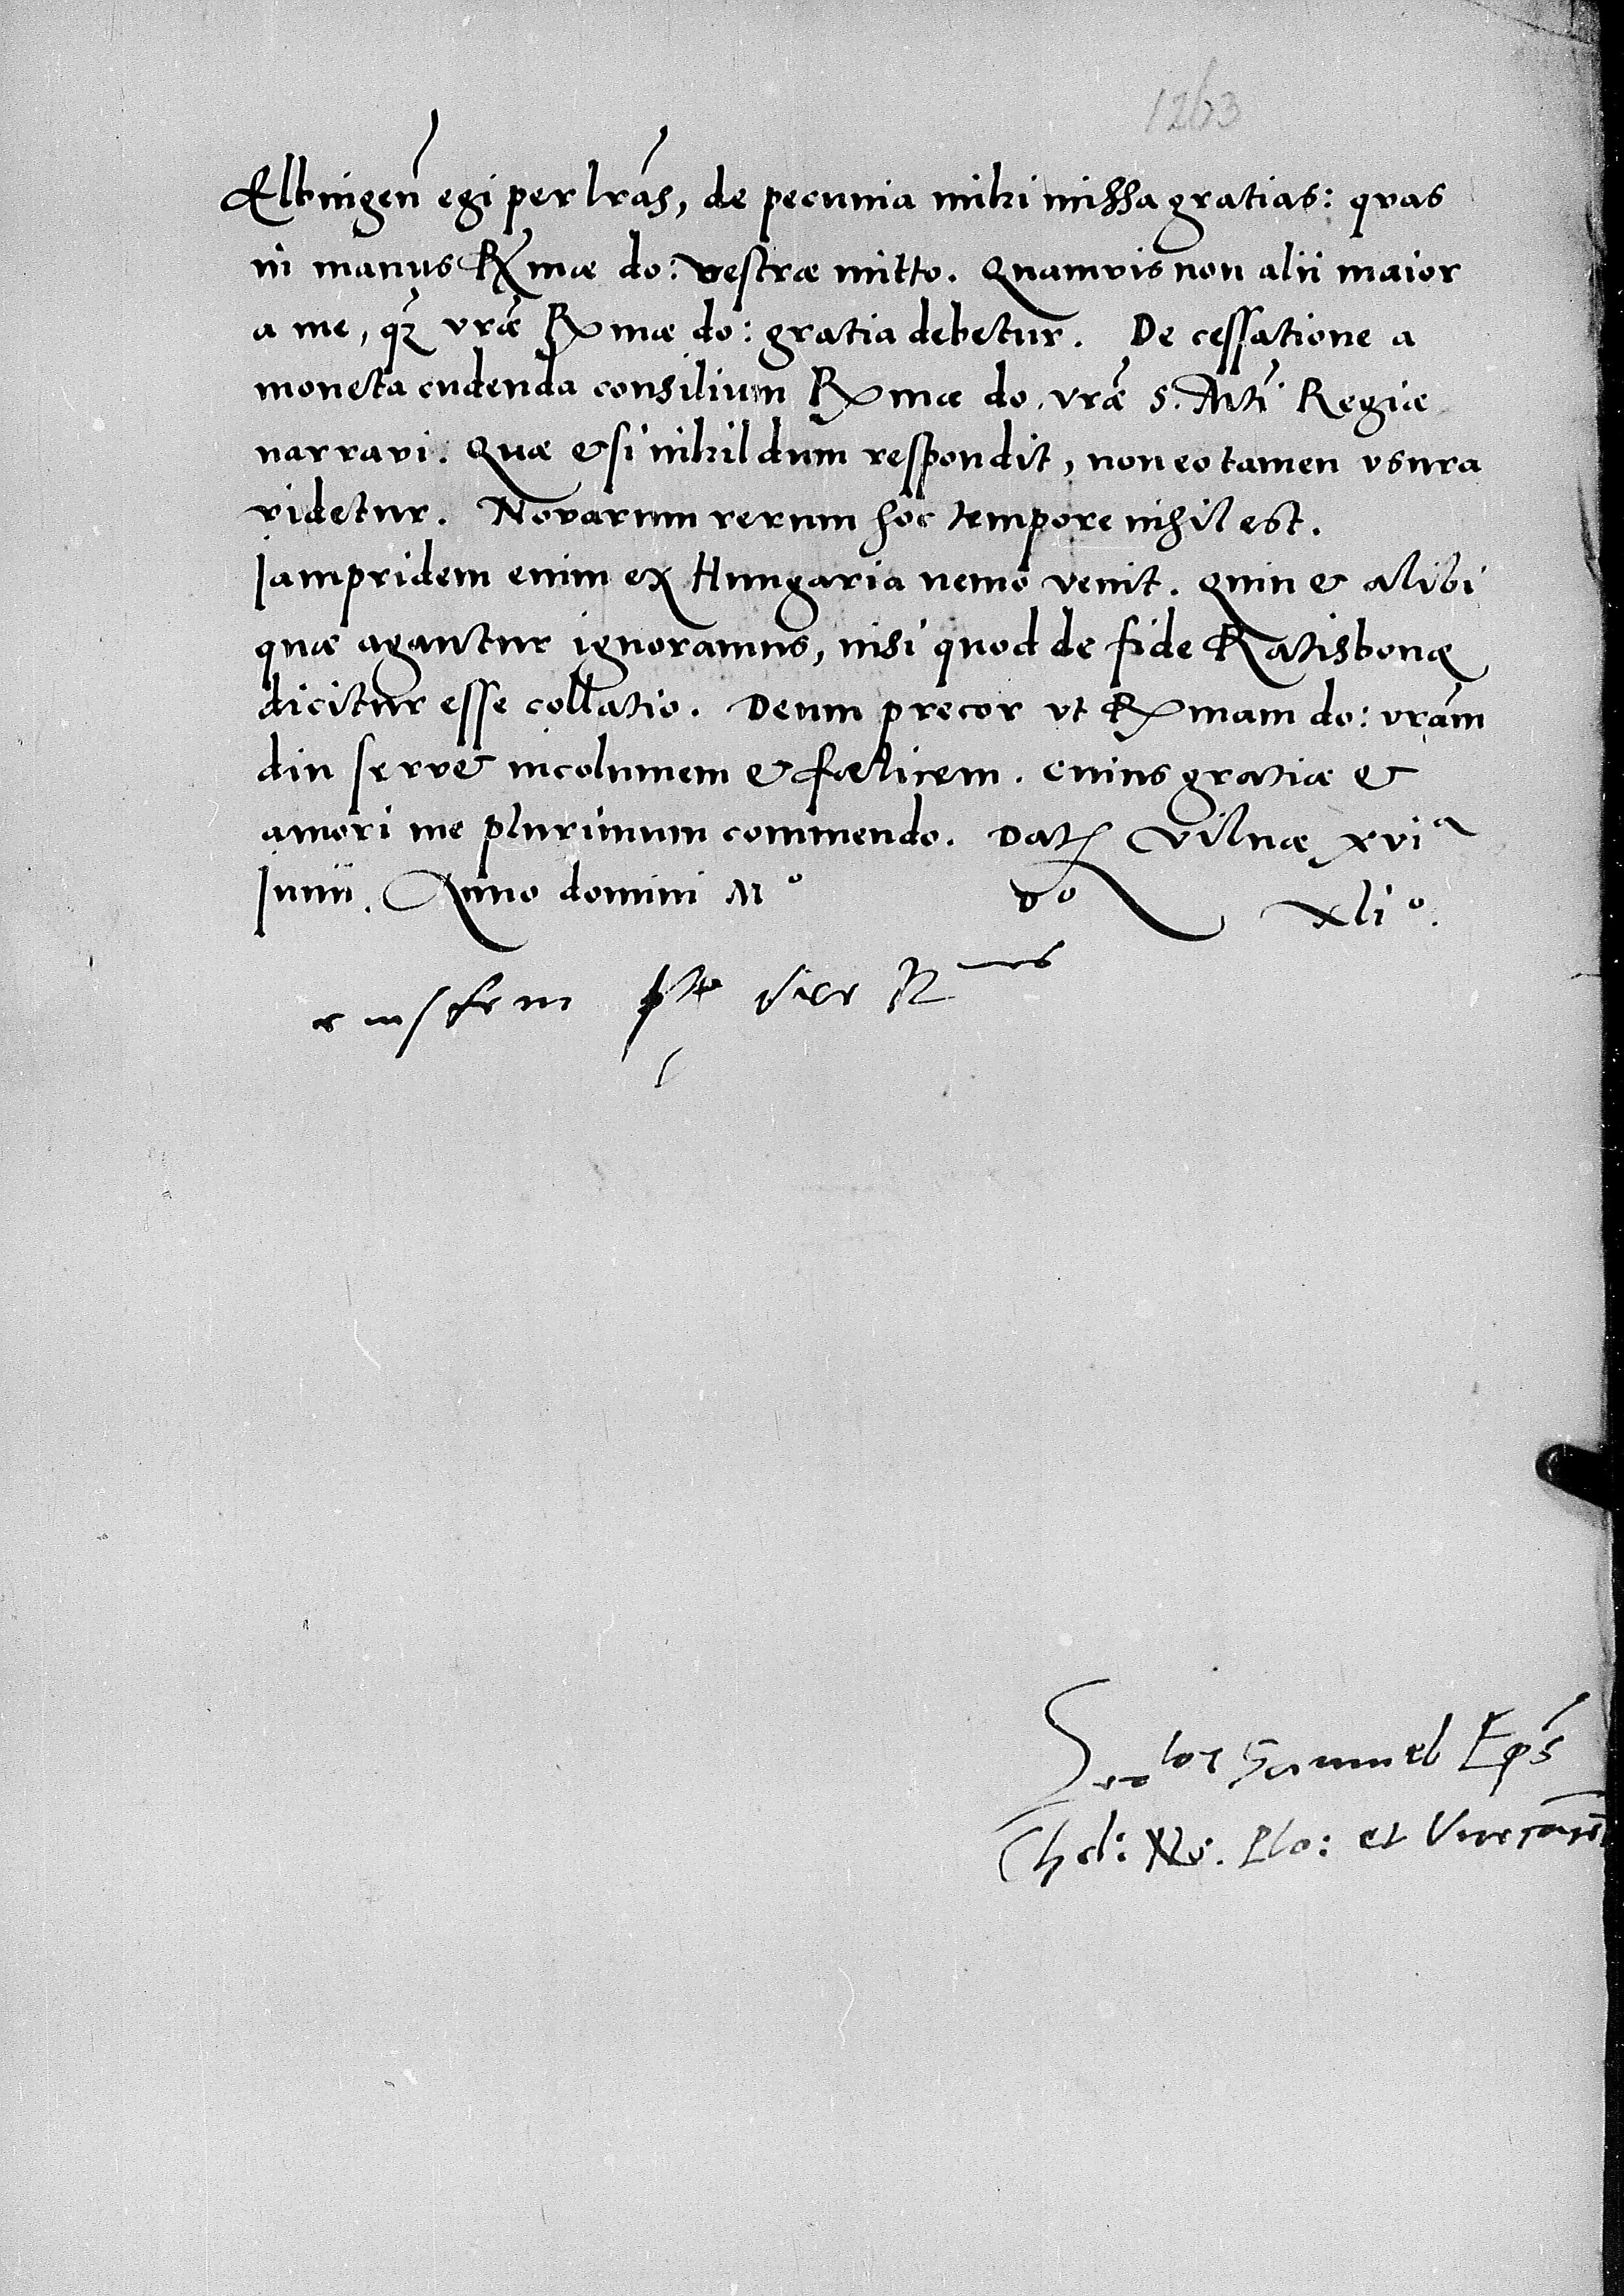 1263
Elbingen̄ egi per lrás, de pecunia mihi missa gratias: quas
in manus R̄mæ do: vestræ mitto. Quamvis non alii maior
a me, qȝ vræ̃ Rmæ do: gratia debetur. De cessatione a
moneta cudenda consilium Rmæ do. vræ̃ S. Mti Regiæ
narravi. Quæ & si nihil dum respondit, non eo tamen usura
videtur. Novarum rerum hoc tempore nihil est.
Jampridem enim ex Hungaria nemo venit. Quin & alibi
quæ agantur ignoramus, nisi quod de fide Ratisbonæ
dicitur esse collatio. Deum precor ut Rmam do: vrãm
diu servet incolumem & fœlicem. Cuius gratiæ &
amori me plurimum commendo. Datȝ Vilnæ xvi a
Junii. Anno domini M o D o xli o.
eiusdem
Samuel Epś
Chel: No. Plo: